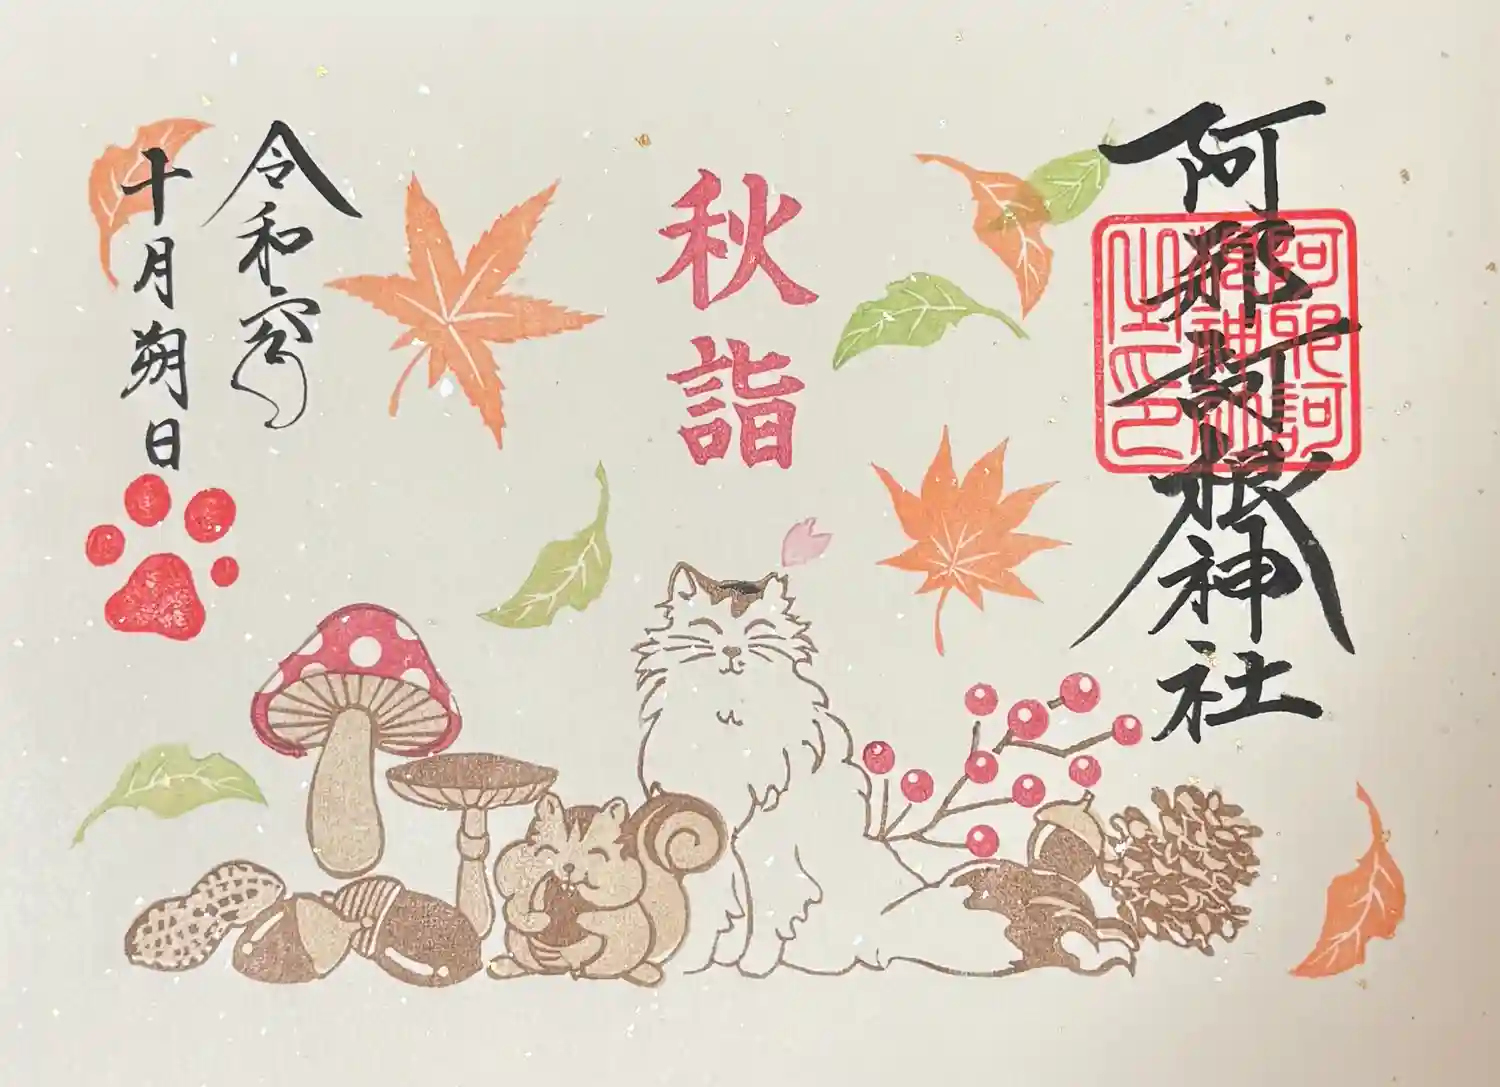 阿邪訶根神社
阿邪訶
根神社
之印
秋詣
令和
十月朔日